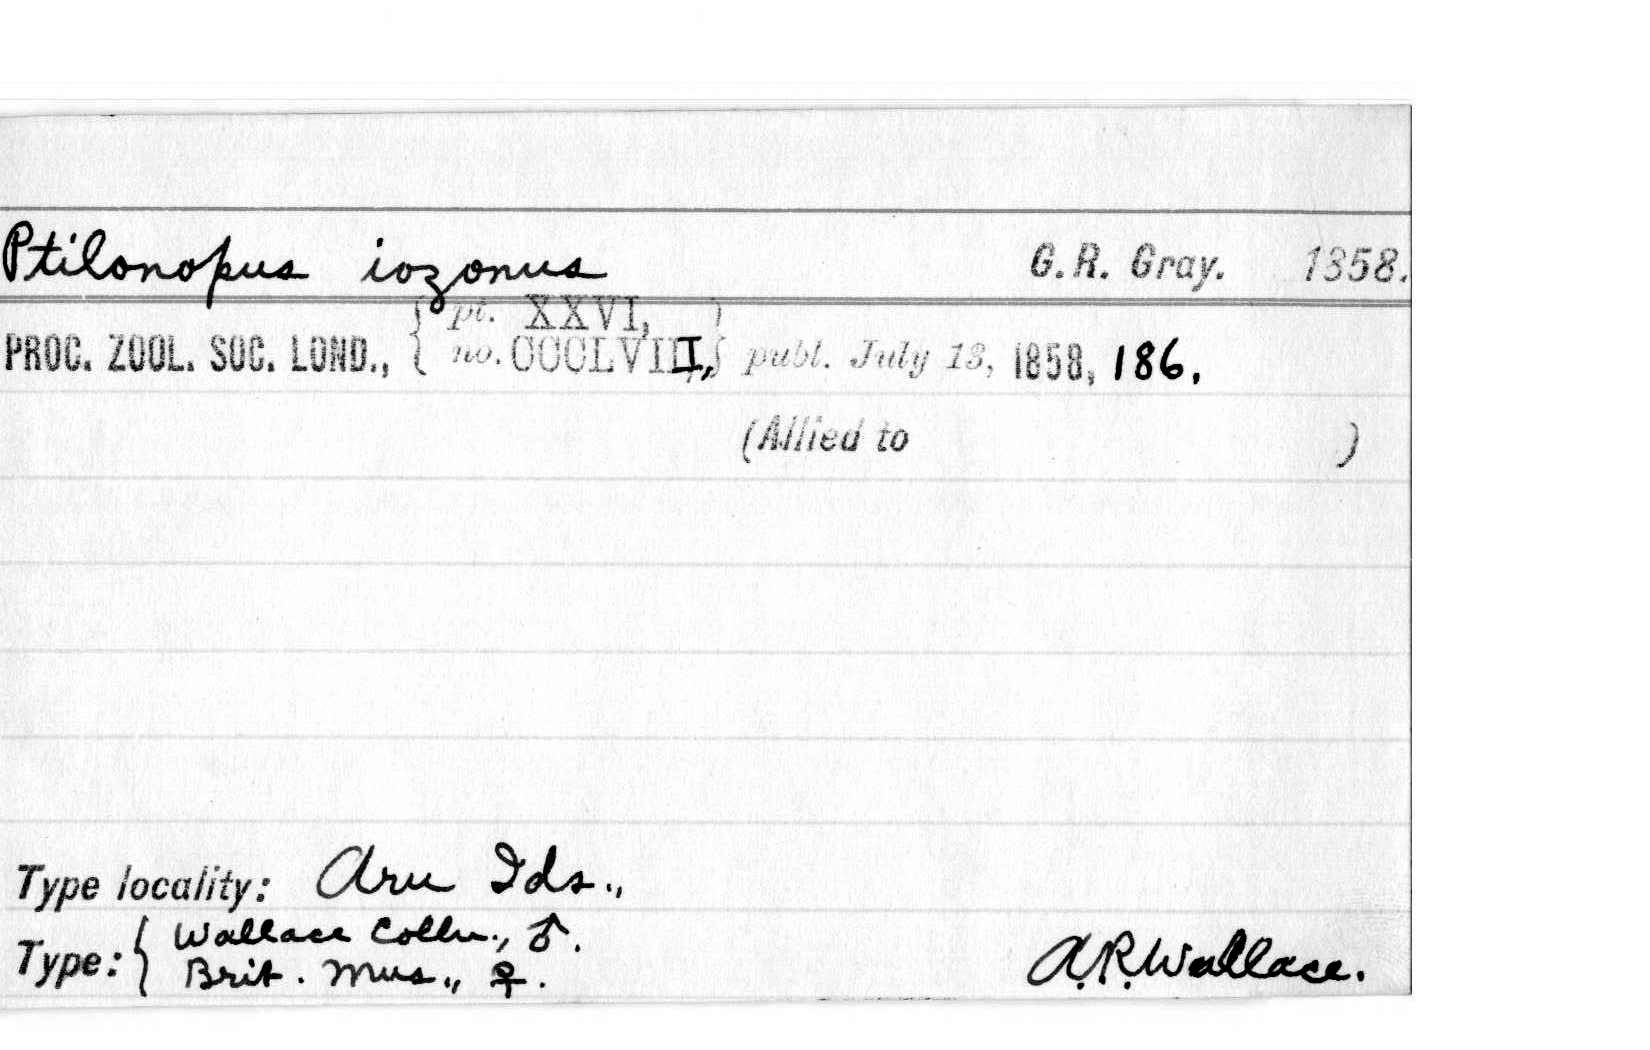 Ptilonopus iozonus G.R. Gray. 1858.
{ pt. XXVI, }
PROC. ZOOL. SOC. LOND., { no. CCCLVIII, } publ. July 13, 1858, 186.
(Allied to )
Type locality: Aru Ids.,
Type: { Wallace Colln., ♂.
Brit. Mus., ♀.
A.R. Wallace.